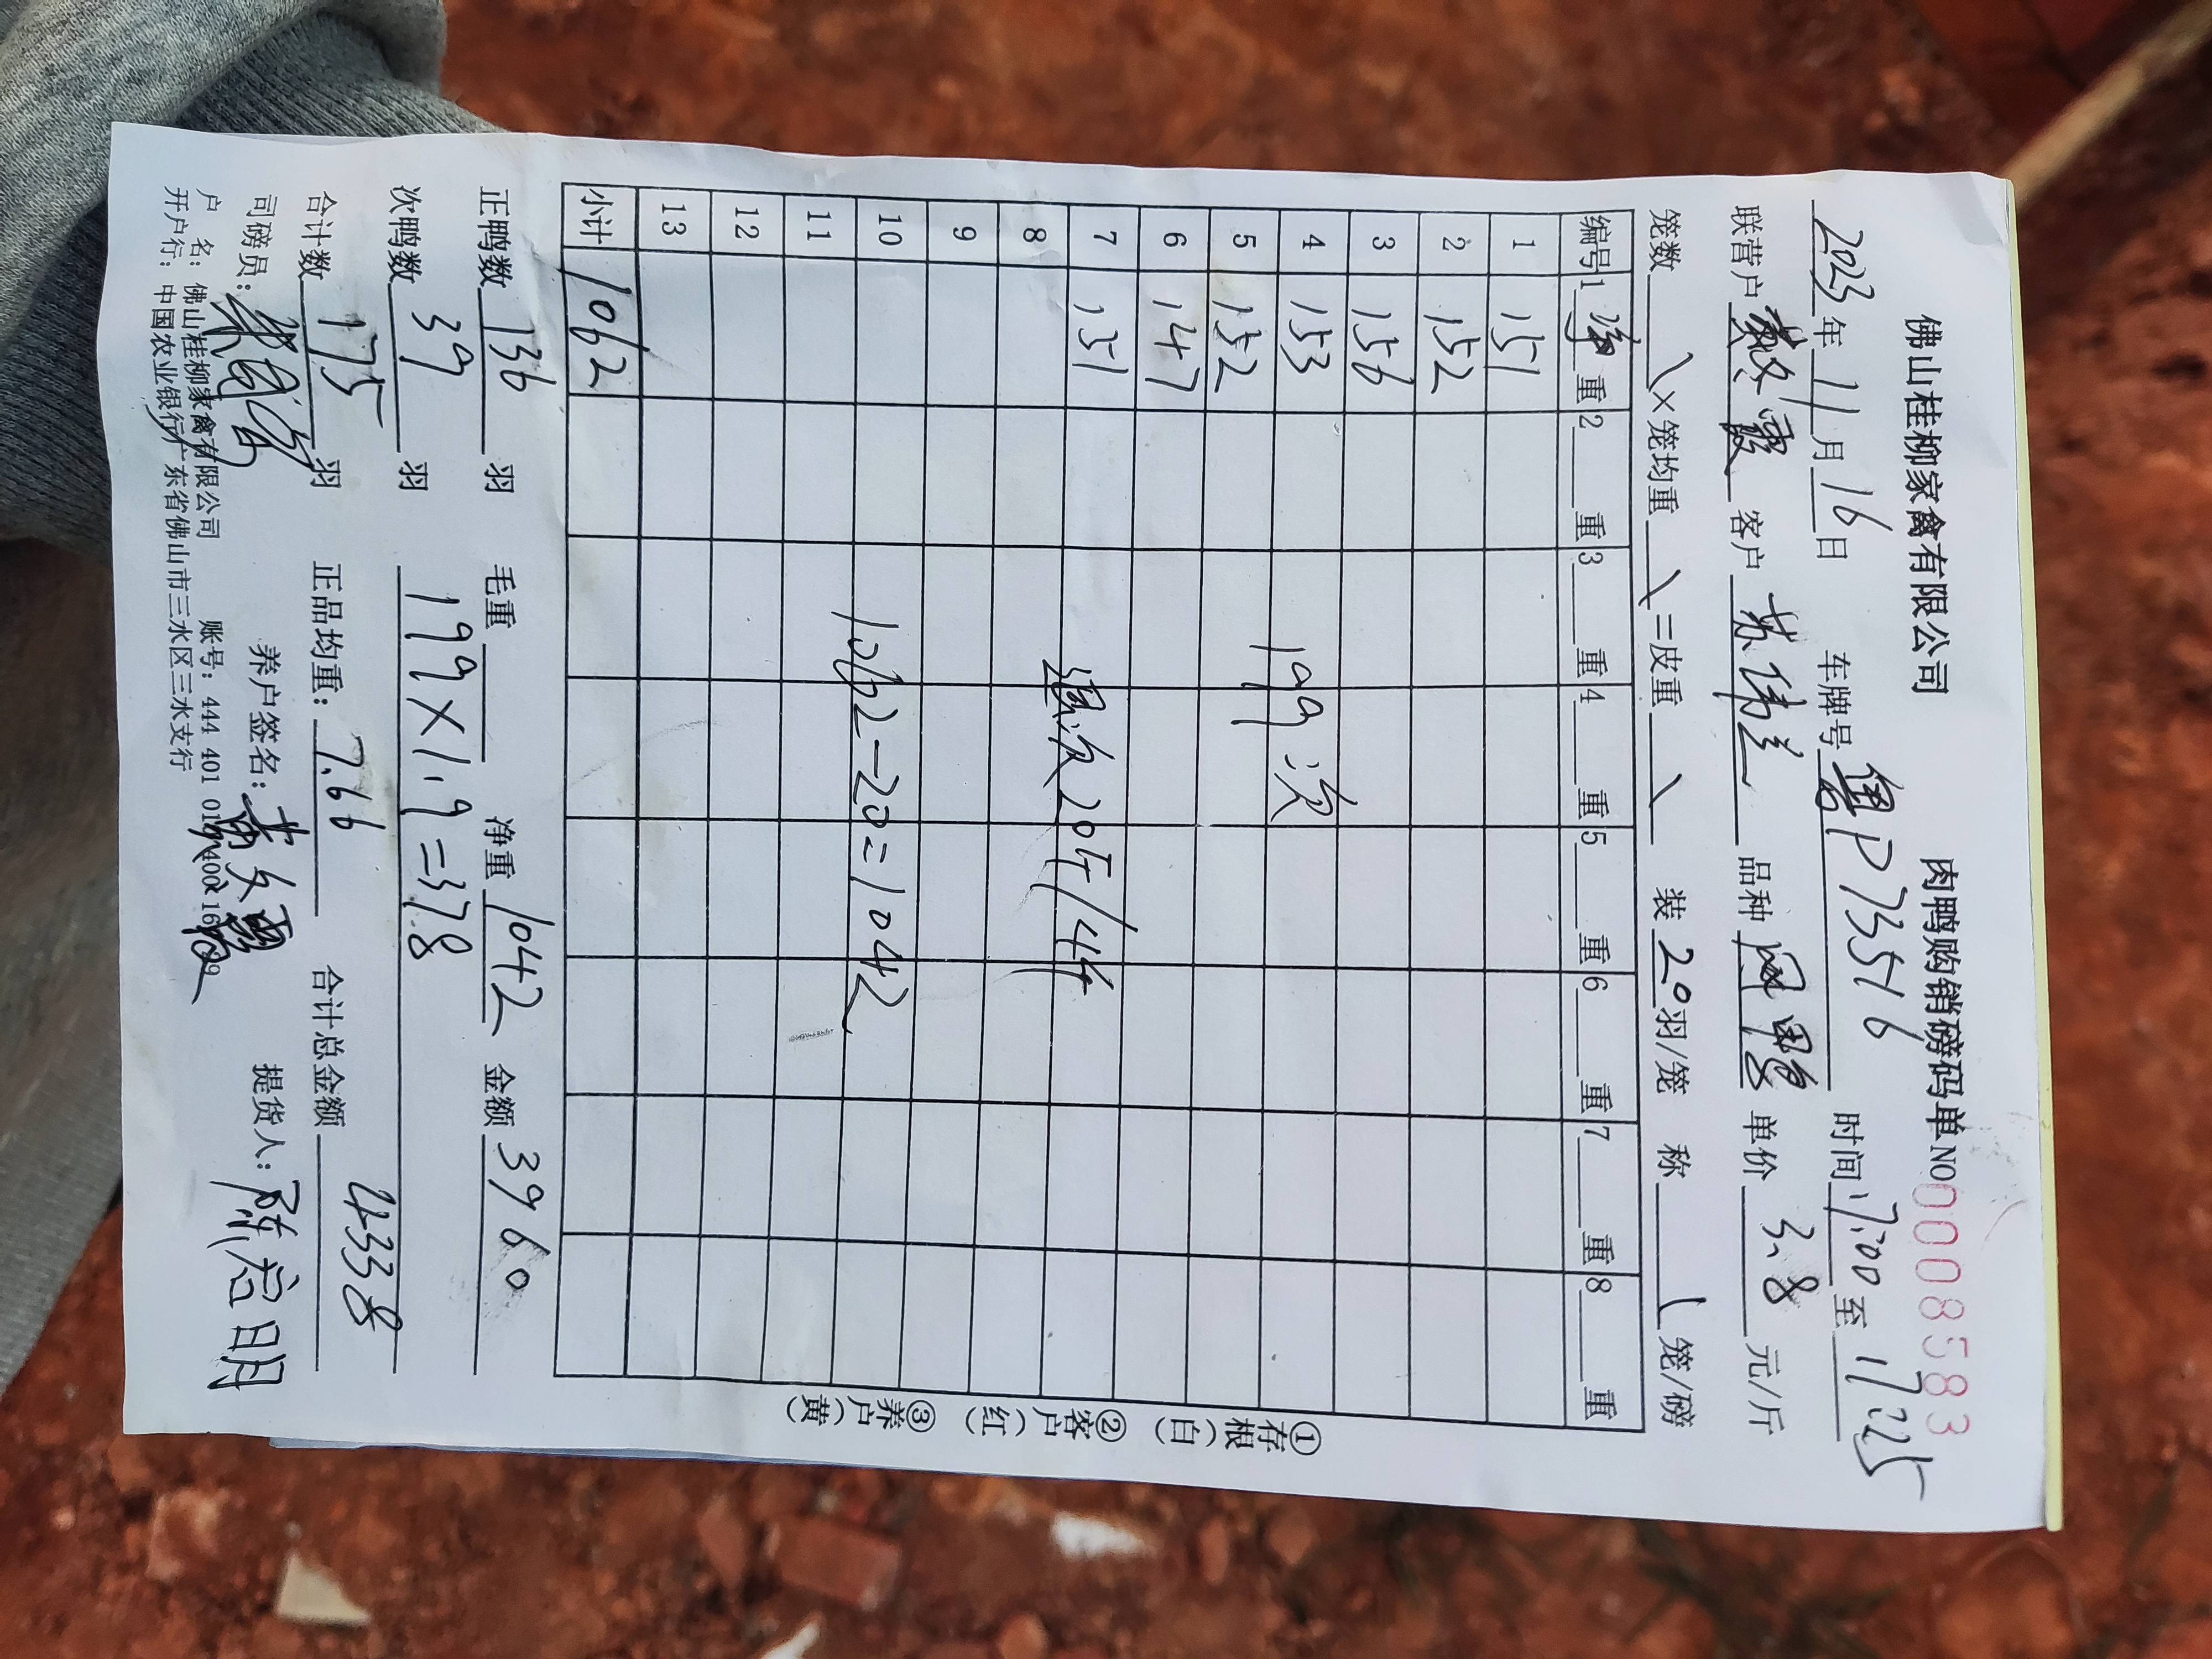 佛山桂柳家禽有限公司 肉鸭购销磅码单 NO 0008583
2023年11月16日 车牌号 粤P73516 时间 17:00 至 17:25
联营户 霞 客户 苏伟兰 品种 单价 3.8 元/斤
笼数 \ ×笼均重 \ =皮重 \ 装 20 羽/笼 称 1 笼/磅
编号 1 净 重 2 重 3 重 4 重 5 重 6 重 7 重 8 重
1 151
2 152
3 156
4 153 199 次
5 152
6 147
7 151 退次20斤/4只
8
9
10 1062-20=1042
11
12
13
小计 1062
①存根(白) ②客户(红) ③养户(黄)
正鸭数 136 羽 毛重 净重 1042 金额 3960
次鸭数 39 羽 199×1.9=378
合计数 175 羽 正品均重: 7.66 合计总金额 4338
司磅员: 养户签名: 黄冬霞 提货人: 陈启明
户 名: 佛山桂柳家禽有限公司 账号: 444 401 010 400
开户行: 中国农业银行广东省佛山市三水区三水支行